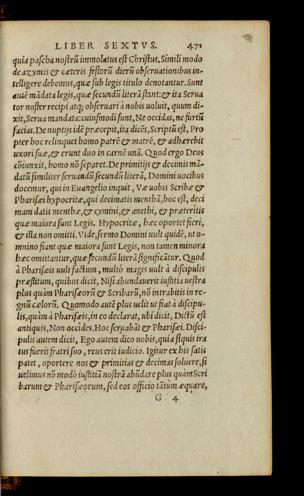 LIBER SEXTVS. 471
quia pascha nostrũ immolatus est Christus, Simili modo
de azymis & cæteris festorũ dierũ obseruationibus in-
telligere debemus, quæ sub legis titulo denotantur. Sunt
autẽ mãdata legis, quæ secundũ literã stant: & ita Serua
tor noster recipi atq; obseruari à nobis uoluit, quum di-
xit, Serua mandata: cuiusmodi sunt, Ne occidas, ne furtũ
facias. De nuptijs idẽ præcepit, ita dicẽs, Scriptũ est, Pro
pter hoc relinquet homo patrẽ & matrẽ, & adhærebit
uxori suæ, & erunt duo in carnẽ unã. Quod ergo Deus
cõiunxit, homo nõ separet. De primitijs & decimis mã-
datũ similiter seruandũ secundũ literã, Domini uocibus
docemur, qui in Euangelio inquit, Væ uobis Scribæ &
Pharisæi hypocritæ, qui decimatis menthã, hoc est, deci
mam datis menthæ, & cymini, & anethi, & præteritis
quæ maiora sunt Legis. Hypocritæ, hæc oportet fieri,
& illa non omitti. Vide, sermo Domini uult quidẽ, ut o-
mnino fiant quæ maiora sunt Legis, non tamen minora
hæc omittantur, quæ secundũ literã significãtur. Quod
à Pharisæis uult factum, multò magis uult à discipulis
præstitum, quibus dicit, Nisi abundauerit iustitia uestra
plus quàm Pharisæorũ & Scribarũ, nõ intrabitis in re-
gnũ cælorũ. Quomodo autẽ plus uelit ut fiat à discipu-
lis, quàm à Pharisæis, in eo declarat, ubi dicit, Dictũ est
antiquis, Non occides. Hoc seruabãt & Pharisæi. Disci-
pulis autem dicit, Ego autem dico uobis, quia siquis ira
tus fuerit fratri suo, reus erit iudicio. Igitur ex his satis
patet, oportere nos & primitias & decimas soluere, si
uelimus nõ modò iustitiã nostrã abũdare plus quàm Scri
barum & Pharisæorum, sed eos officio tãtum æquare,
G 4